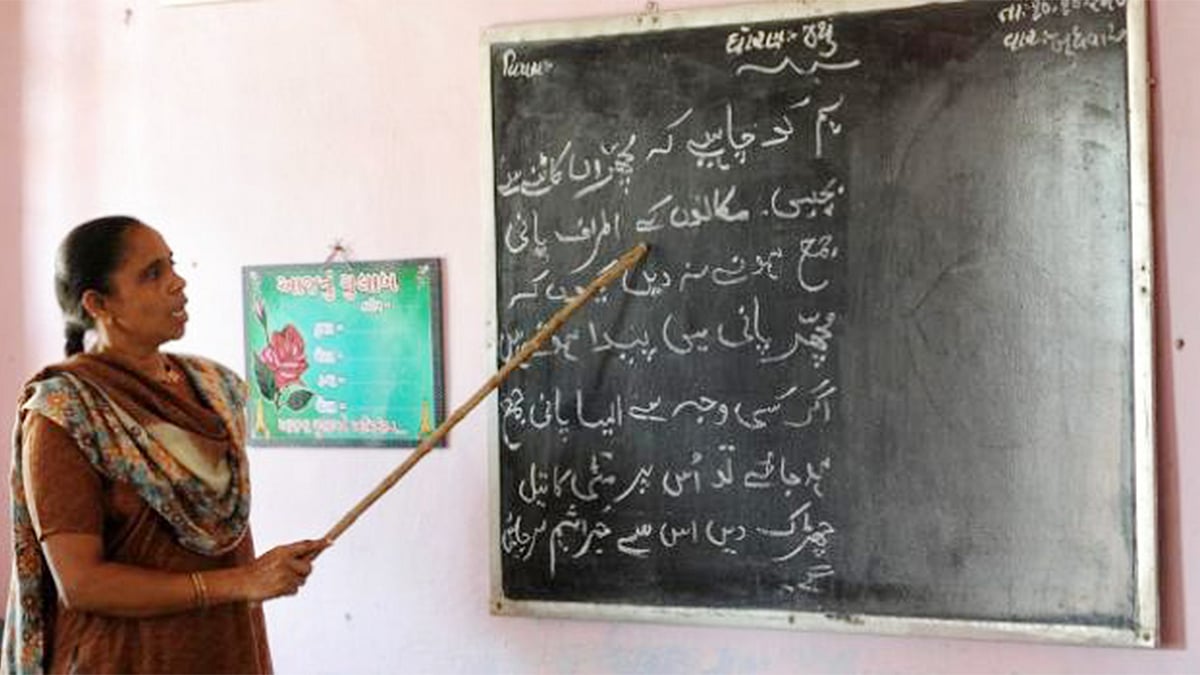 વિષય:-
ધોરણ:- ૪થુ
તા:
વાર:- બુધવાર
ہم کو چاہیے کہ مچھّروں کاٹنے سے
بچیں۔ مکانوں کے اطراف پانی
جمع ہونے نہ دیں کیوں کہ
مچھّر پانی میں پیدا ہوتے ہیں
اگر کسی وجہ سے ایسا پانی جمع
ہو جائے تو اُس پر مٹّی کا تیل
چھڑک دیں اس سے جراثیم مر جائیں
گے۔
આજનું ગુલાબ